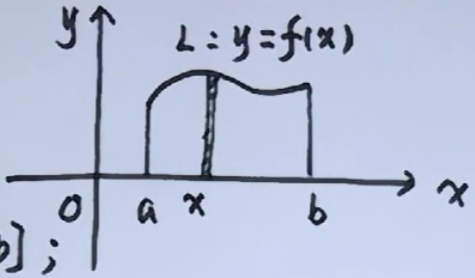 y
L: y=f(x)
0 a x b x
b] ;